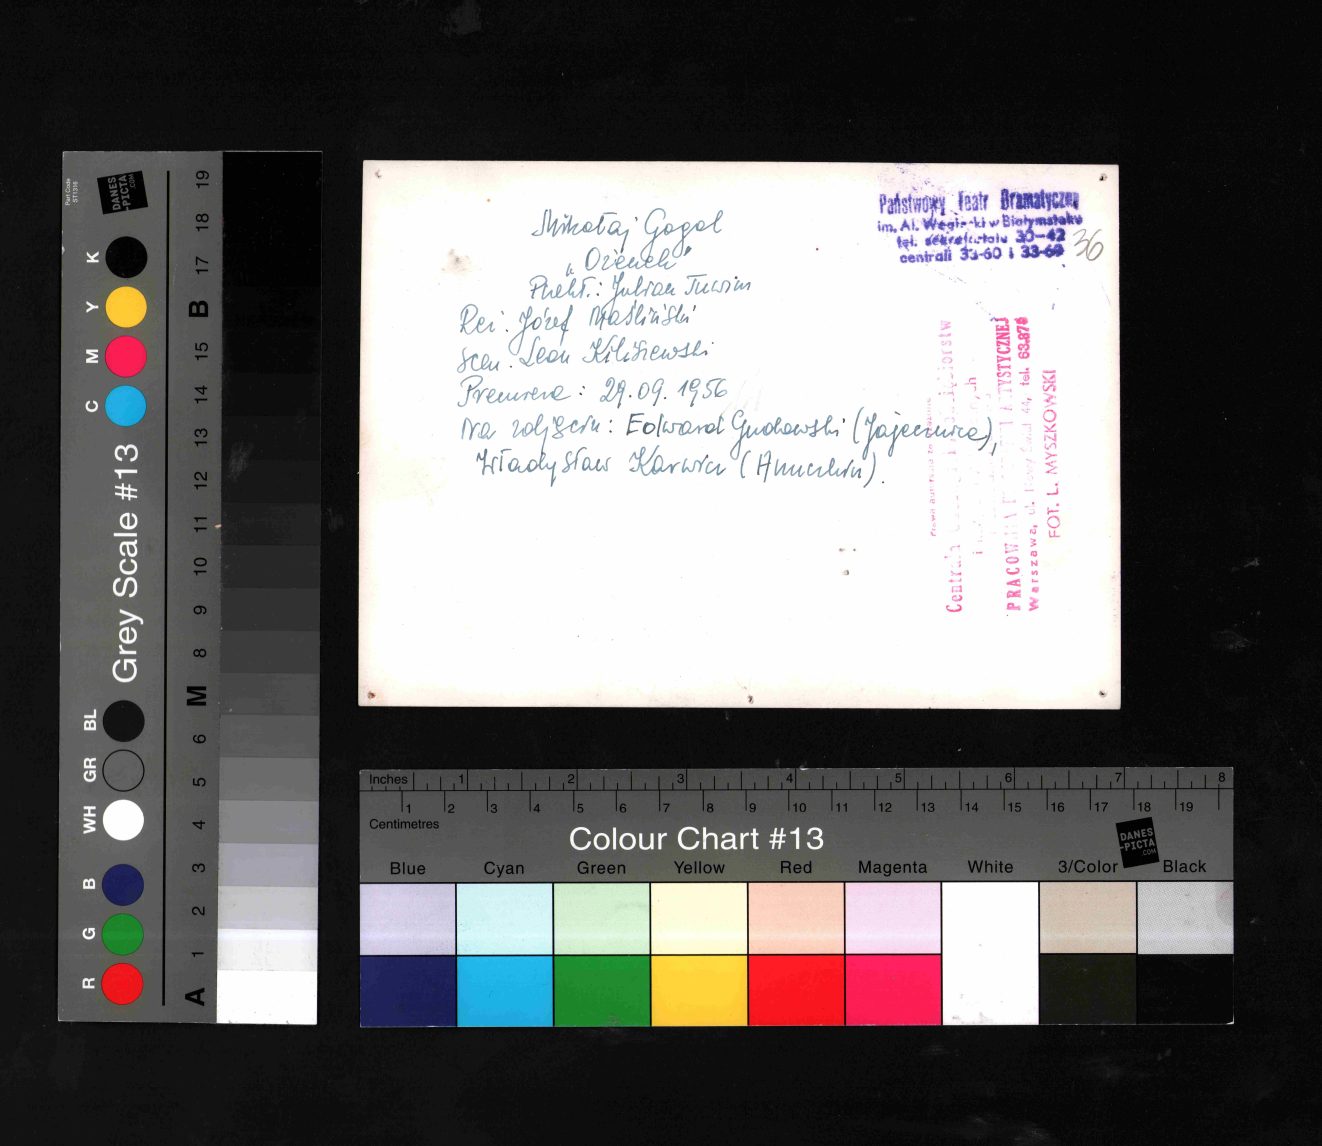 Mikołaj Gogol
„Ożenek”
Przekł.: Julian Tuwim
Reż. Józef Maśliński
Scen. Leon Kiliszewski
Premiera: 29.09.1956
Na zdjęciu: Edward Guchowski (Jajecznica),
Władysław Karwin (Anuczkin).
Państwowy Teatr Dramatyczny
im. Al. Węgierki w Białymstoku
tel. sekretariatu 30-42
centrali 33-60 i 33-69
36
Centrala
PRACOWNIA ARTYSTYCZNEJ
Warszawa, ul. 44, tel. 63.878
FOT. L. MYSZKOWSKI
Part Code
ST1316
DANES
-PICTA
.COM
Grey Scale #13
K
Y
M
C
BL
GR
WH
B
G
R
A 1 2 3 4 5 6 M 8 9 10 11 12 13 14 15 B 17 18 19
Inches 1 2 3 4 5 6 7 8
1 2 3 4 5 6 7 8 9 10 11 12 13 14 15 16 17 18 19
Centimetres
Colour Chart #13
DANES
-PICTA
.COM
Blue Cyan Green Yellow Red Magenta White 3/Color Black